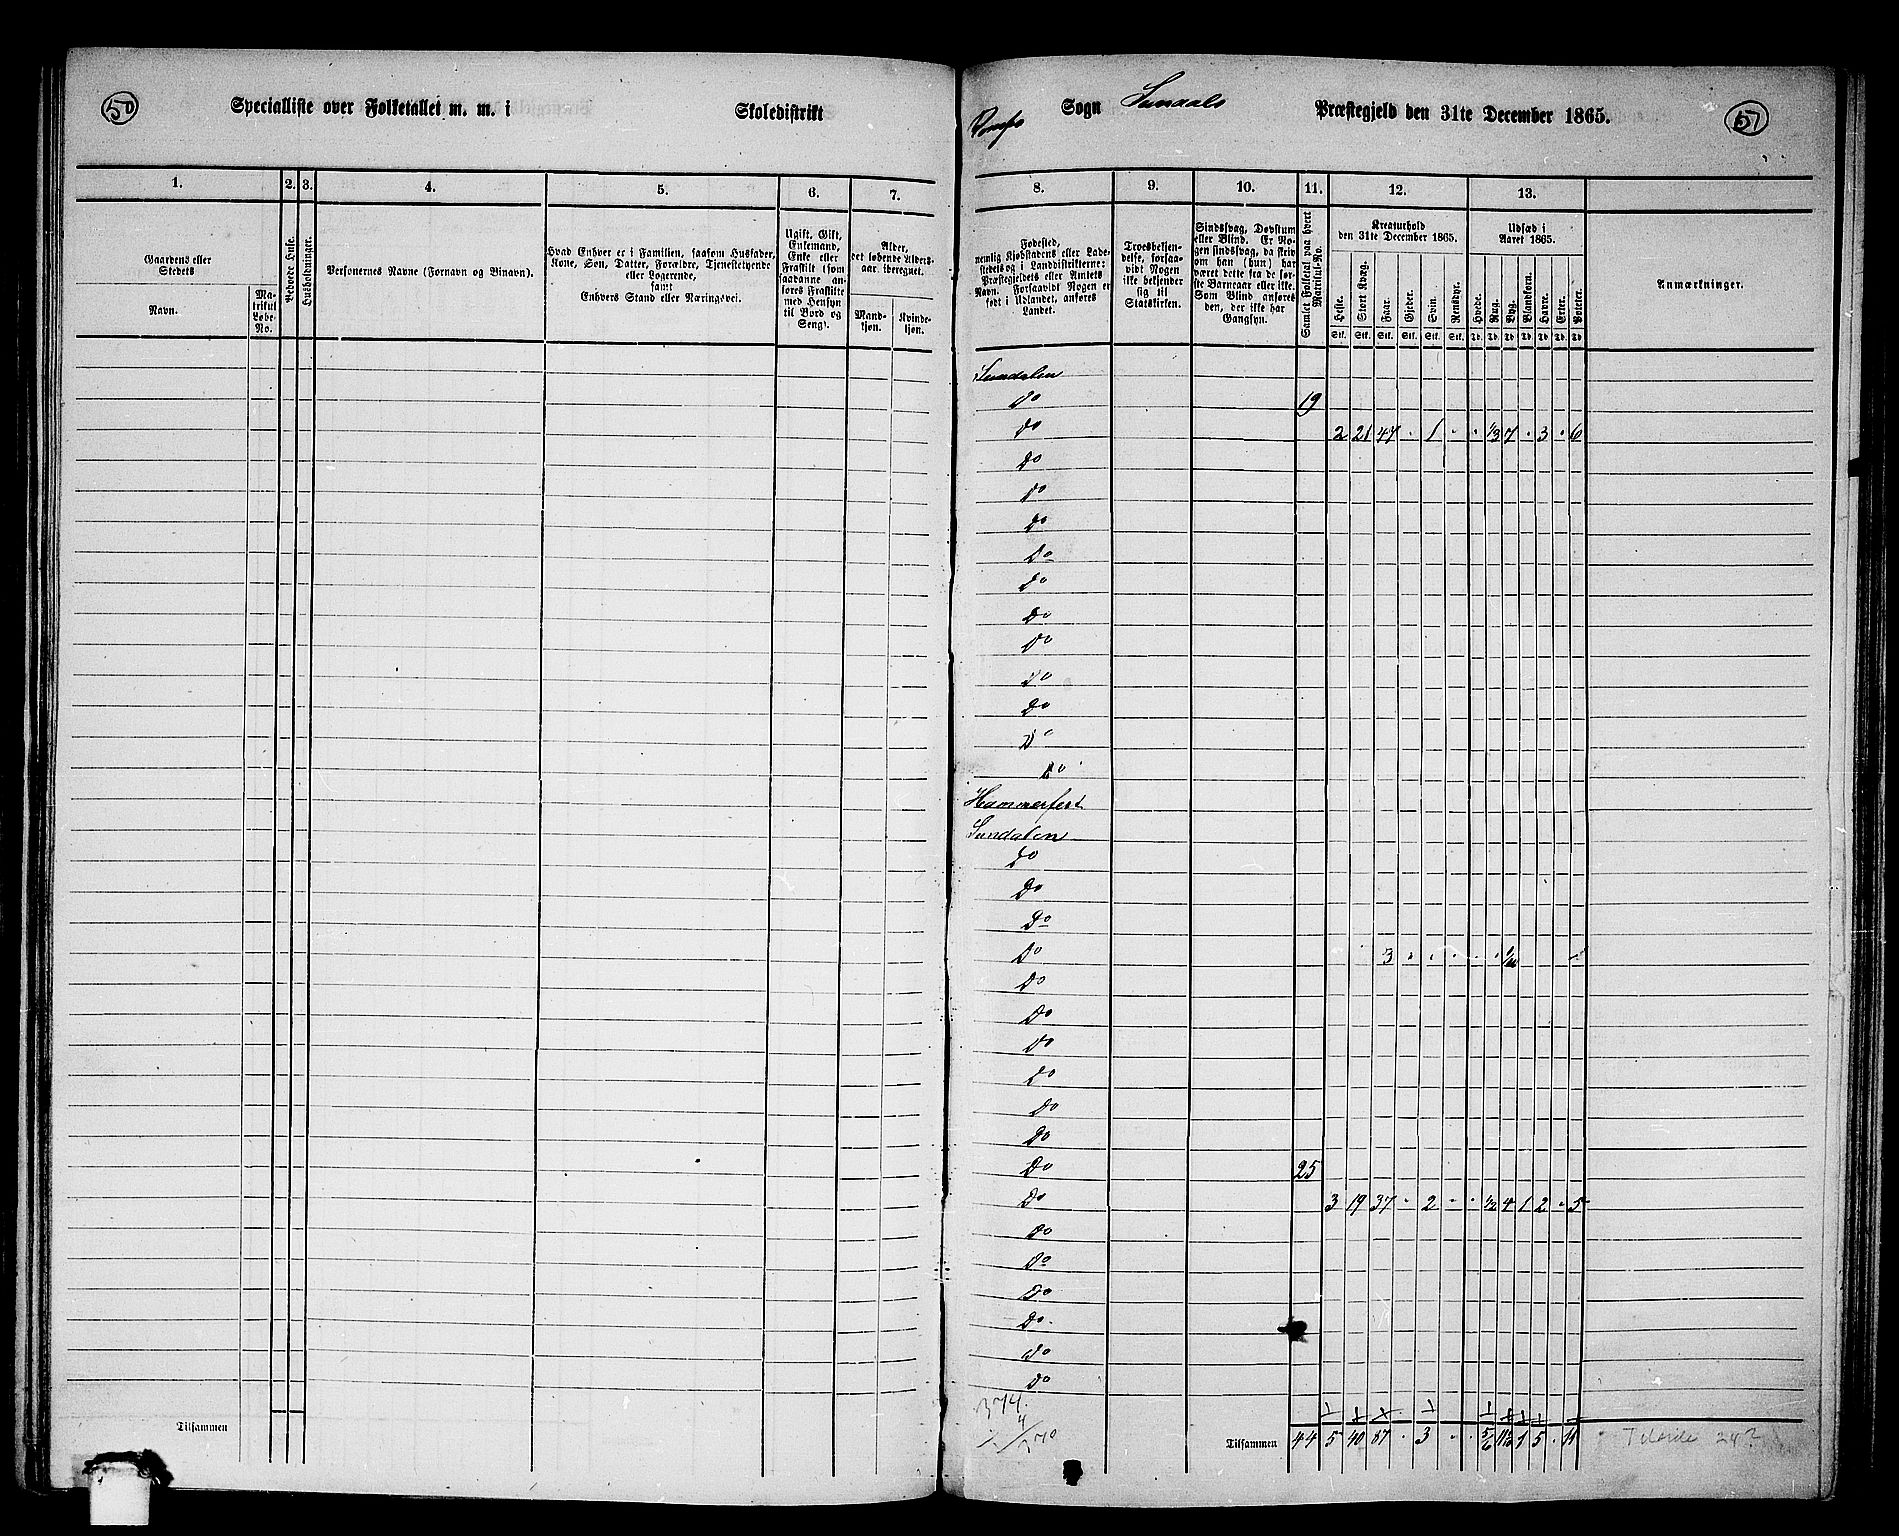 50
Specialliste over Folketallet m. m. i
Skoledistrikt
1.
2.
3.
4.
5.
6.
7.
Gaardens eller Stedets
Navn.
Matrikul Løbe-No.
Beboede Huse.
Husholdninger.
Personernes Navne (Fornavn og Binavn).
Hvad Enhver er i Familien, saasom Husfader,
Kone, Søn, Datter, Forældre, Tjenestetyende
eller Logerende,
samt
Enhvers Stand eller Næringsvei.
Ugift, Gift,
Enkemand,
Enke eller
Fraskilt (som
saadanne an-
føres Fraskilte
med Hensyn
til Bord og
Seng).
Alder,
det løbende Alders-
aar iberegnet.
Mand-
kjøn.
Kvinde-
kjøn.
Tilsammen
Sogn
Sundals
Præstegjeld den 31te December 1865.
51
8.
9.
10.
11.
12.
13.
Fødested,
nemlig Kjøbstadens eller Lade-
stedets og i Landdistrikterne:
Præstegjeldets eller Amtets
Navn. Forsaavidt Nogen er
født i Udlandet, anføres
Landet.
Troesbekjen-
delse, forsaa-
vidt Nogen
ikke bekjender
sig til
Statskirken.
Sindssvag, Døvstum
eller Blind. Er No-
gen sindssvag, da skriv
om han (hun) har
været dette fra de før-
ste Barneaar eller ikke.
Som Blind anføres
den, der ikke har
Gangsyn.
Samlet Folketal paa hvert Matrikul-No.
Kreaturhold
den 31te December 1865.
Heste. Stort Kvæg. Faar. Gjeder. Svin. Rensdyr.
Stk. Stk. Stk. Stk. Stk. Stk.
Udsæd i
Aaret 1865.
Hvede. Rug. Byg. Blandkorn. Havre. Erter. Poteter.
Td. Td. Td. Td. Td. Td. Td.
Anmærkninger.
Sundalen
Do 19
Do 2 21 47 " 1 " " 1/3 7 " 3 " 6
Do
Do
Do
Do
Do
Do
Do
Do
Do
Do
Do
Hammerfest
Sundalen
Do
Do
Do
Do 3 " " " " "
Do
Do
Do
Do
Do
Do
Do 25
Do 3 19 37 " 2 " " 1/2 4 1 2 " 5
Do
Do
Do
Do
Do
Do
374.
4
Tilsammen 44 5 40 87 " 3 " " 5/6 1 5 " 11